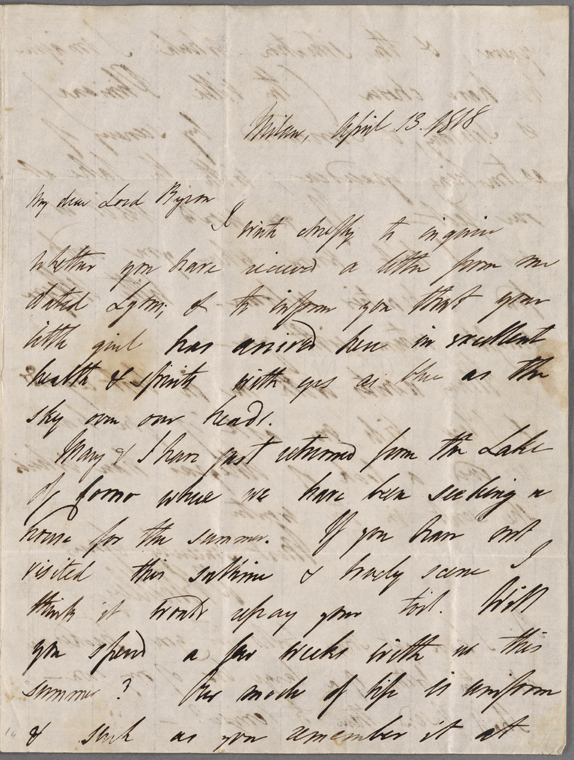 Milan, April 13. 1818.
My dear Lord Byron
I write chiefly to inquire
whether you have received a letter from me
dated Lyons; & to inform you that your
little girl has arrived here in excellent
health & spirits with eyes as blue as the
sky over our heads.
Mary & I have just returned from the Lake
of Como where we have been seeking a
house for the summer. If you have not
visited this sublime & lovely scene I
think it would repay your toil. Will
you spend a few weeks with us this
summer? Our mode of life is uniform
& such as you remember it at